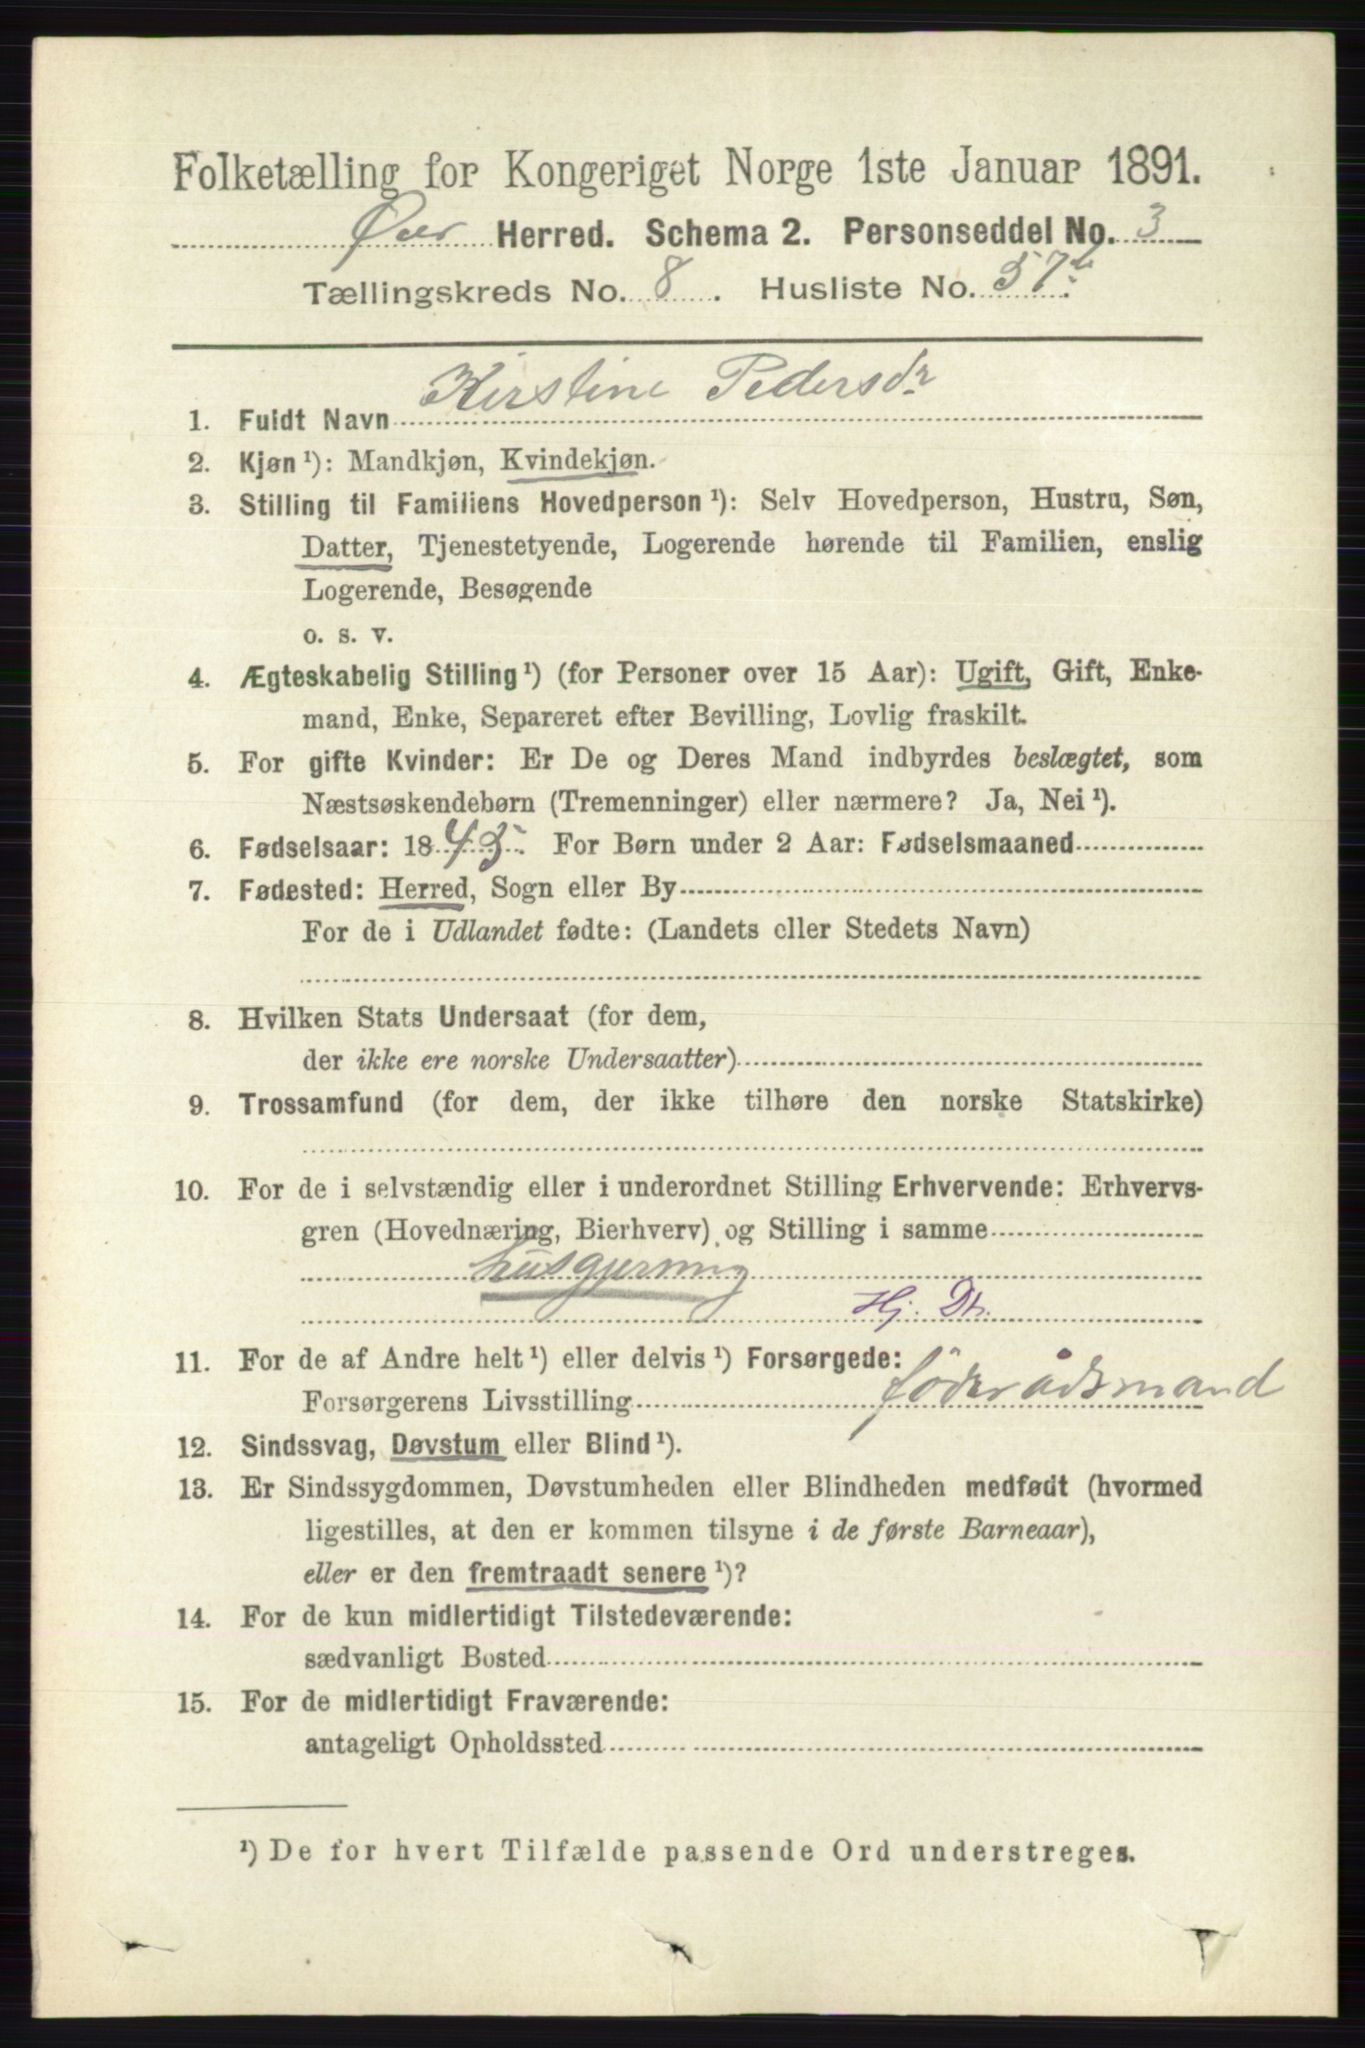 Folketælling for Kongeriget Norge 1ste Januar 1891.
Øier Herred. Schema 2. Personseddel No. 3
Tællingskreds No. 8. Husliste No. 57b.
1. Fuldt Navn Kirstine Pedersdr
2. Kjøn ¹): Mandkjøn, Kvindekjøn.
3. Stilling til Familiens Hovedperson ¹): Selv Hovedperson, Hustru, Søn,
Datter, Tjenestetyende, Logerende hørende til Familien, enslig
Logerende, Besøgende
o. s. v.
4. Ægteskabelig Stilling ¹) (for Personer over 15 Aar): Ugift, Gift, Enke-
mand, Enke, Separeret efter Bevilling, Lovlig fraskilt.
5. For gifte Kvinder: Er De og Deres Mand indbyrdes beslægtet, som
Næstsøskendebørn (Tremenninger) eller nærmere? Ja, Nei ¹).
6. Fødselsaar: 1845. For Børn under 2 Aar: Fødselsmaaned
7. Fødested: Herred, Sogn eller By
For de i Udlandet fødte: (Landets eller Stedets Navn)
8. Hvilken Stats Undersaat (for dem,
der ikke ere norske Undersaatter)
9. Trossamfund (for dem, der ikke tilhøre den norske Statskirke)
10. For de i selvstændig eller i underordnet Stilling Erhvervende: Erhvervs-
gren (Hovednæring, Bierhverv) og Stilling i samme
husgjerning
Hj. Dt.
11. For de af Andre helt ¹) eller delvis ¹) Forsørgede:
Forsørgerens Livsstilling föderådsmand
12. Sindssvag, Døvstum eller Blind ¹).
13. Er Sindssygdommen, Døvstumheden eller Blindheden medfødt (hvormed
ligestilles, at den er kommen tilsyne i de første Barneaar),
eller er den fremtraadt senere ¹)?
14. For de kun midlertidigt Tilstedeværende:
sædvanligt Bosted
15. For de midlertidigt Fraværende:
antageligt Opholdssted
¹) De for hvert Tilfælde passende Ord understreges.